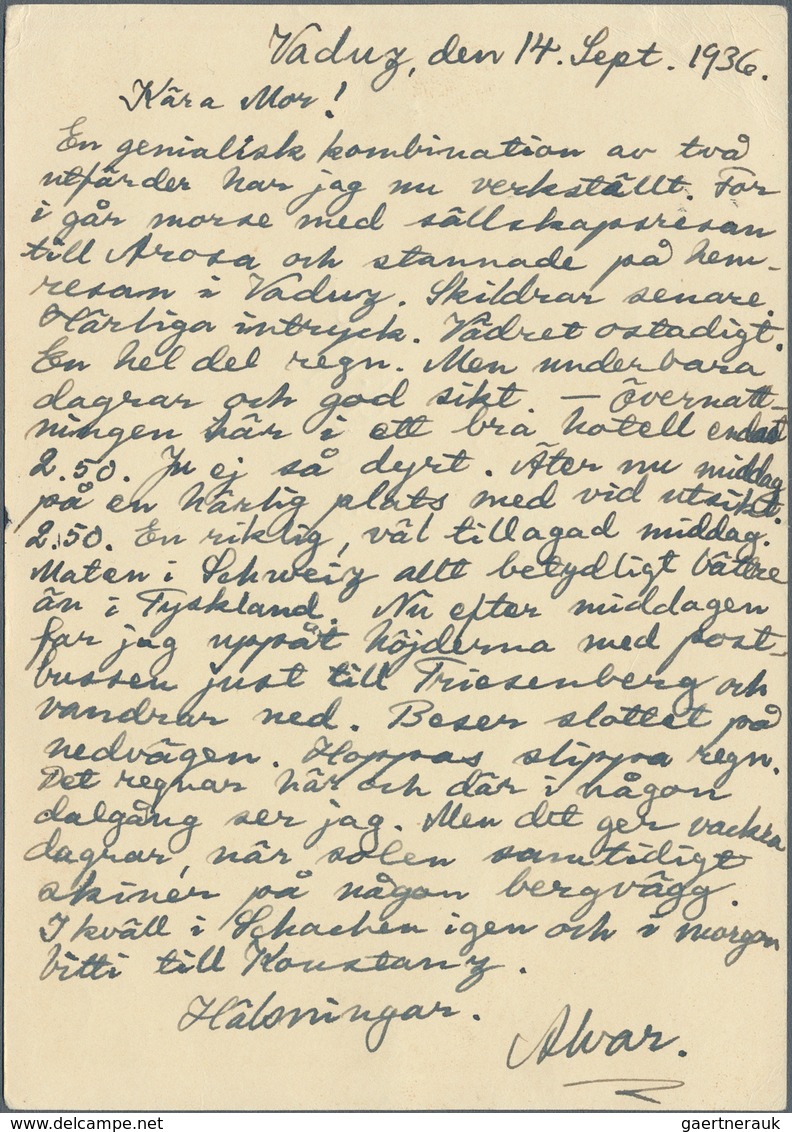 Vaduz, den 14. Sept. 1936.
Kära Mor!
En genialisk kombination av två
utfärder har jag nu verkställt. For
i går morse med sällskapsresan
till Arosa och stannade på hem-
resan i Vaduz. Skildrar senare.
Härliga intryck. Vädret ostadigt.
En hel del regn. Men underbara
dagrar och god sikt. — Övernatt-
ningen här i ett bra hotell endast
2.50. Ju ej så dyrt. Äter nu middag
på en härlig plats med vid utsikt.
2.50. En riklig, väl tillagad middag.
Maten i Schweiz allt betydligt bättre
än i Tyskland. Nu efter middagen
far jag uppåt höjderna med post-
bussen just till Triesenberg och
vandrar ned. Beser slottet på
nedvägen. Hoppas slippa regn.
Det regnar här och där i någon
dalgång ser jag. Men det ger vackra
dagrar, när solen samtidigt
skiner på någon bergvägg.
I kväll i Schachen igen och i morgon
bitti till Konstanz.
Hälsningar.
Alvar.
gaertnerauk